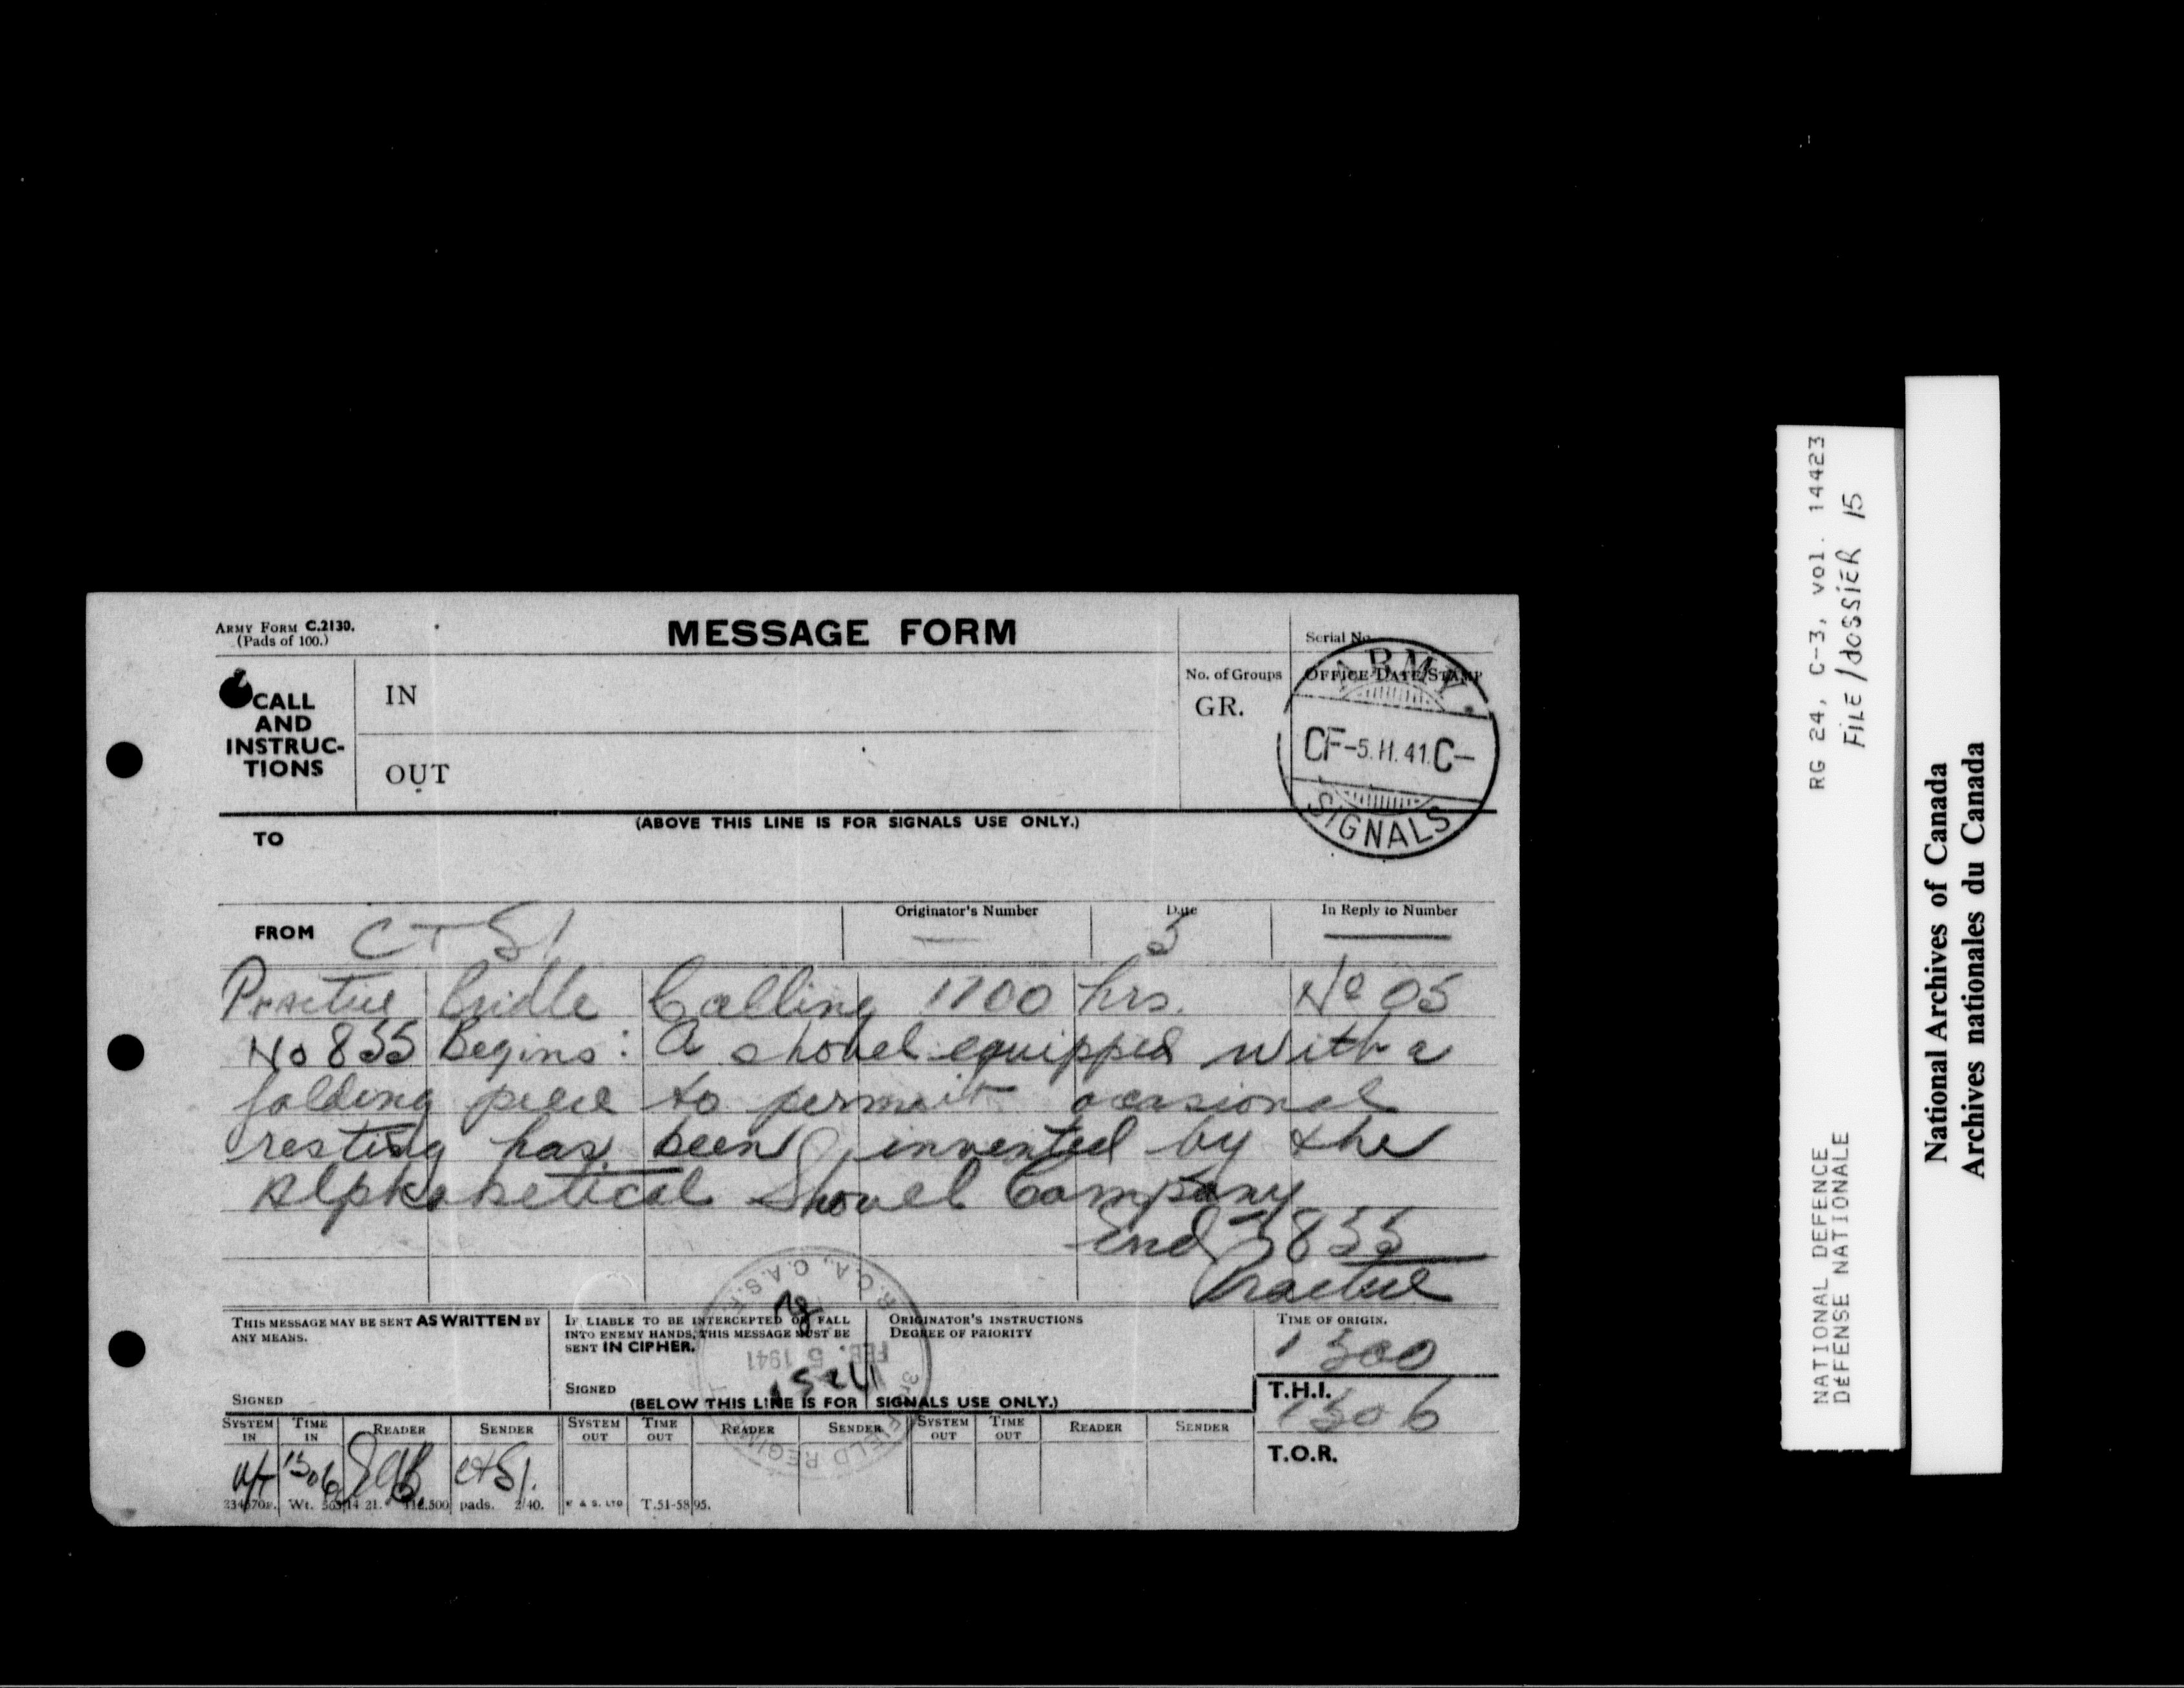 ARMY FORM C.2130.
(Pads of 100.)
MESSAGE FORM
Serial No.
CALL
AND
INSTRUC-
TIONS
IN
OUT
No. of Groups
GR.
OFFICE DATE STAMP
ARMY
CF-5.II.41.C-
SIGNALS
(ABOVE THIS LINE IS FOR SIGNALS USE ONLY.)
TO
FROM
Originator's Number
—
Date
5
In Reply to Number
—
Practice Bridle Calling 1700 hrs. No 05
No 855 Begins: A shovel equipped with a
folding piece to permit occasional
resting has been invented by the
Alphabetical Shovel Company
End 855
Practice
THIS MESSAGE MAY BE SENT AS WRITTEN BY
ANY MEANS.
SIGNED
IF LIABLE TO BE INTERCEPTED OR FALL
INTO ENEMY HANDS, THIS MESSAGE MUST BE
SENT IN CIPHER.
SIGNED
ORIGINATOR'S INSTRUCTIONS
DEGREE OF PRIORITY
FEB. 5 1941
TIME OF ORIGIN.
1300
T.H.I.
1306
T.O.R.
(BELOW THIS LINE IS FOR SIGNALS USE ONLY.)
SYSTEM IN TIME IN READER SENDER SYSTEM OUT TIME OUT READER SENDER SYSTEM OUT TIME OUT READER SENDER
1306
pads. 2/40. T.51-5895.
RG 24, C-3, vol. 14423
FILE/dOSSIER 15
NATIONAL DEFENCE
DÉFENSE NATIONALE
National Archives of Canada
Archives nationales du Canada